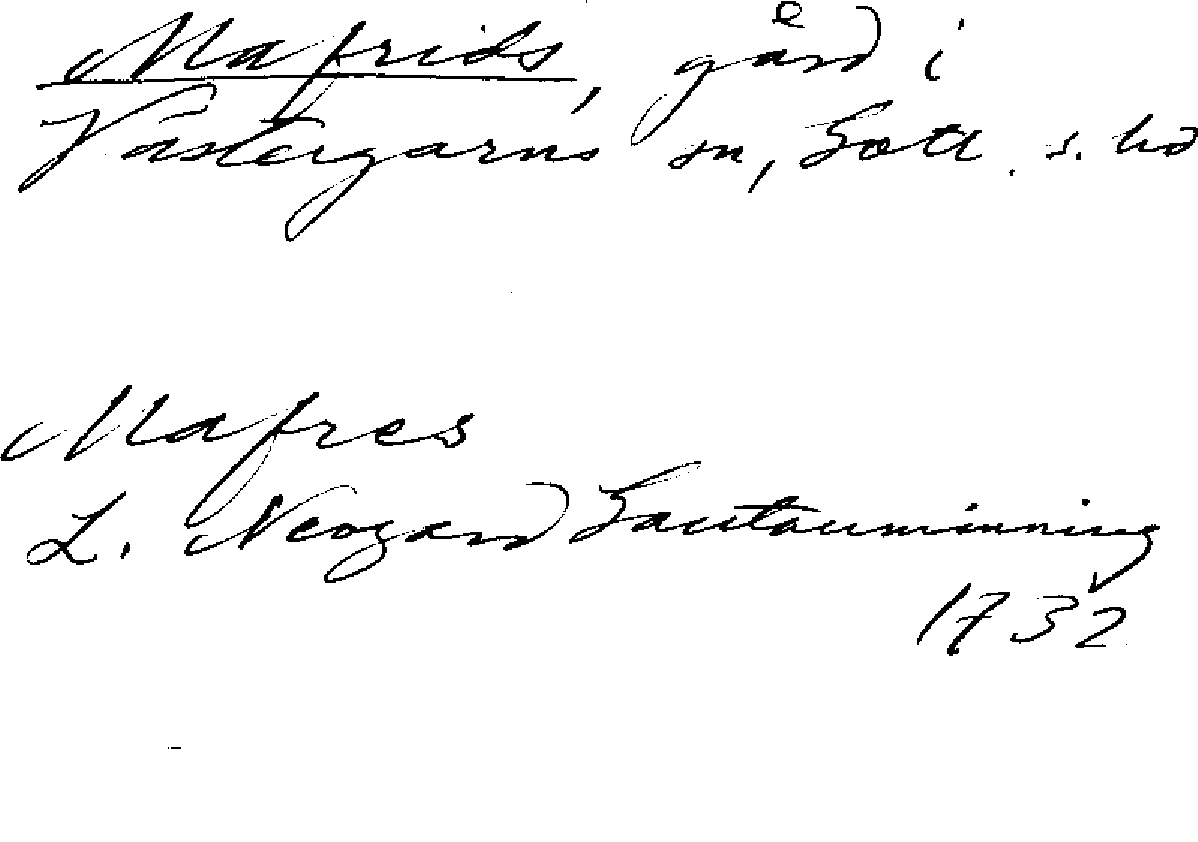 Mafrids, gård i
Västergarns sn, Gotl. s. hd
Mafres
L. Neogard Gautauminning
1732